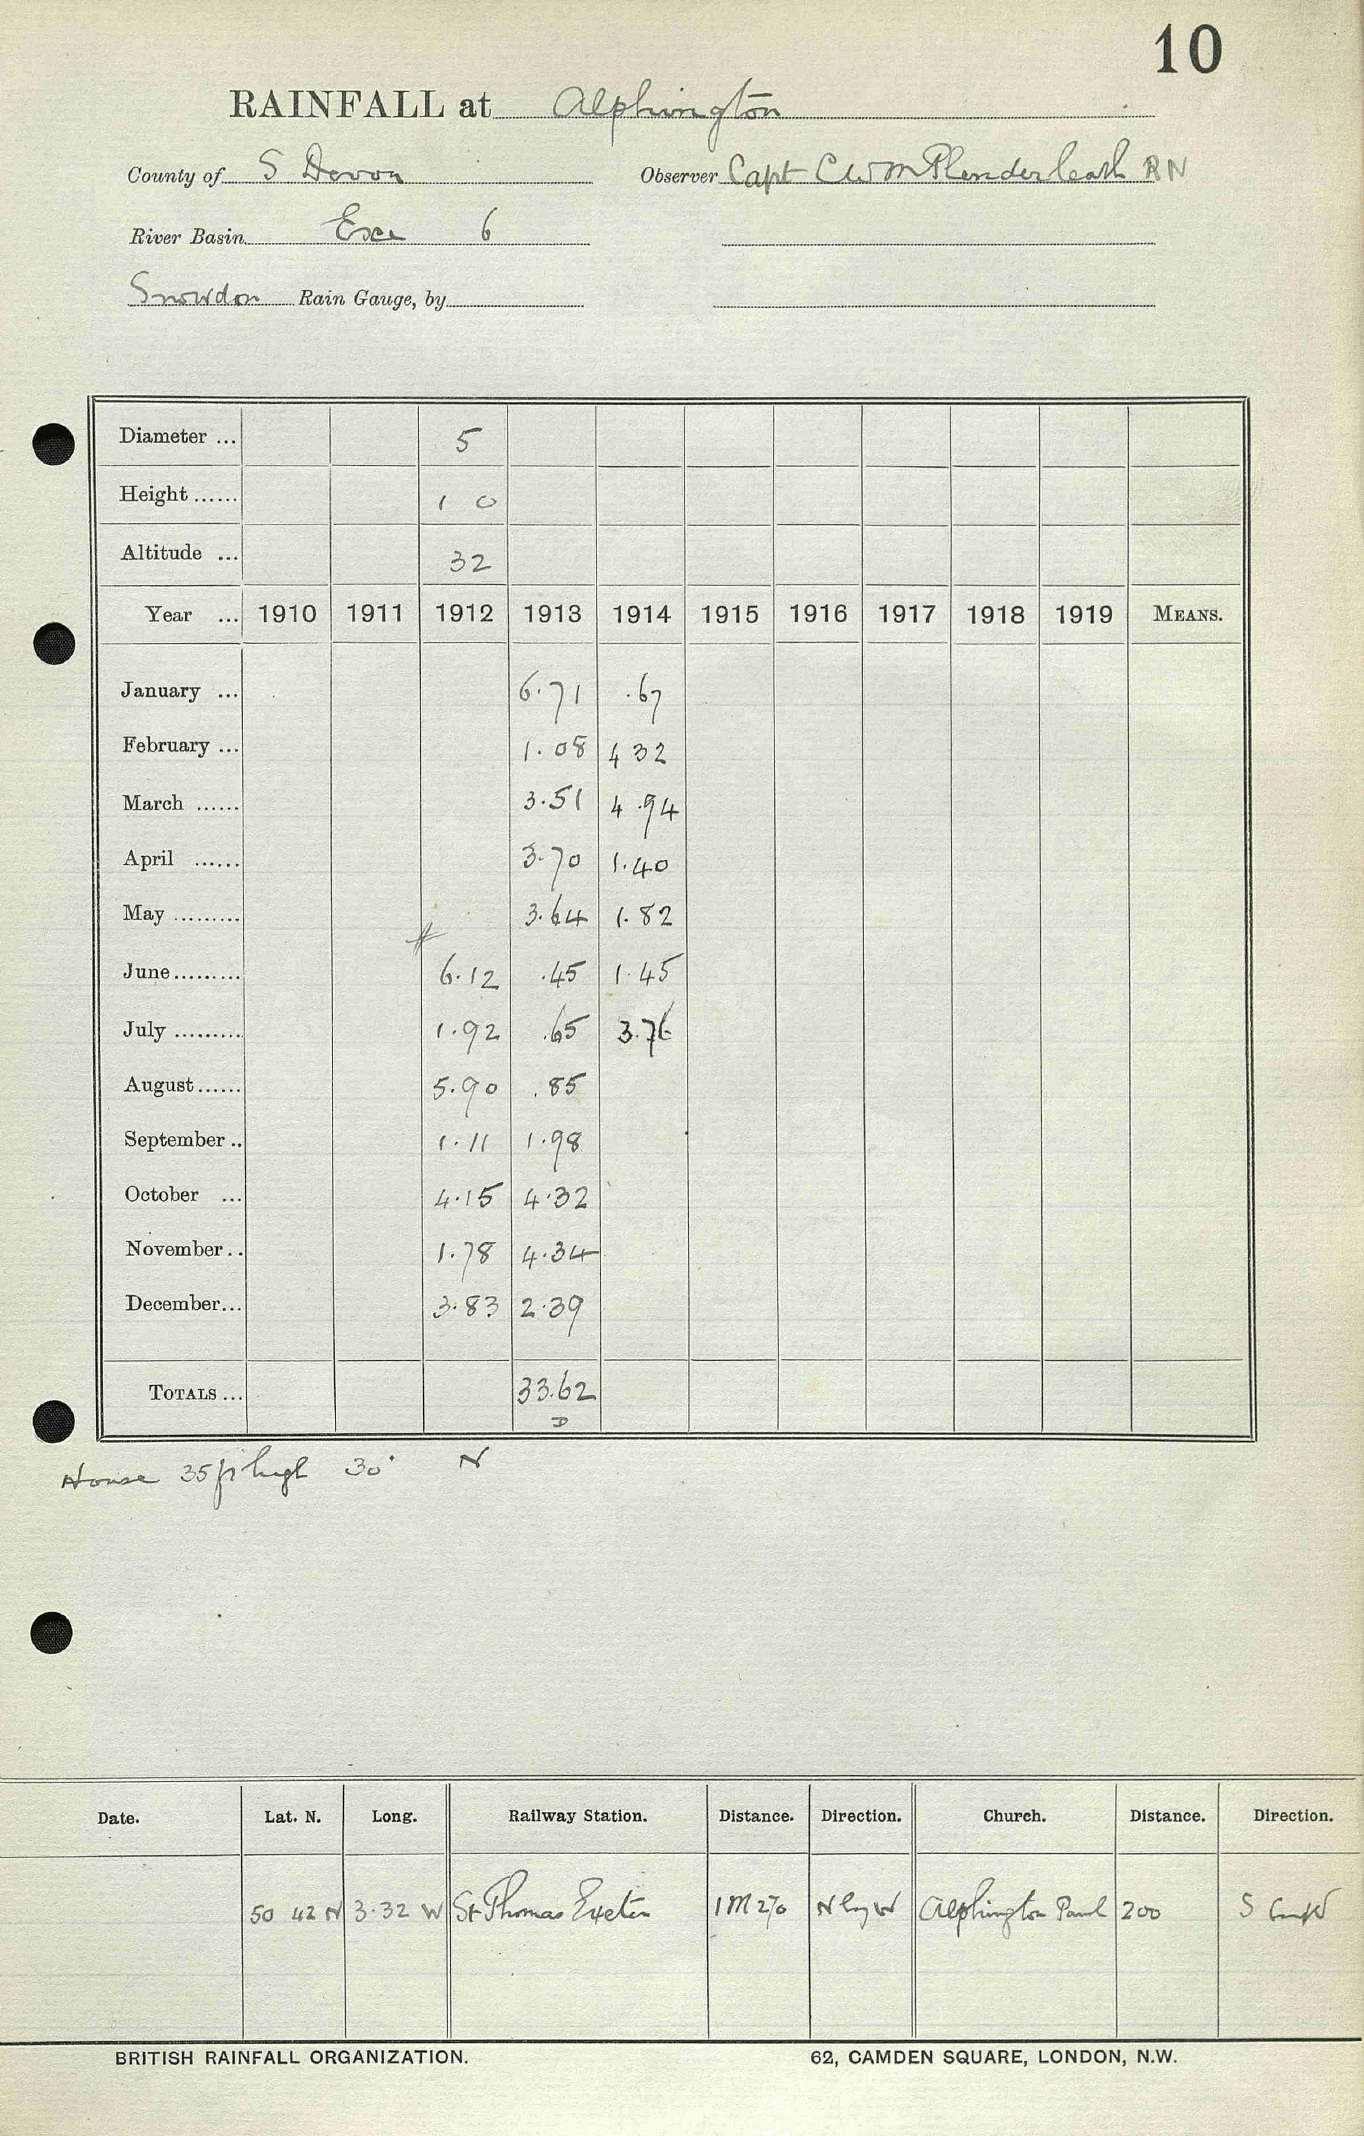 10
RAINFALL at Alphington
County of S Devon Observer Capt C W M Plenderleath RN
River Basin Exe 6
Snowdon Rain Gauge, by
Diameter ... 5
Height ...... 1 0
Altitude ... 32
Year ... 1910 1911 1912 1913 1914 1915 1916 1917 1918 1919 MEANS.
January ... 6.71 .67
February ... 1.08 4 32
March ...... 3.51 4.94
April ...... 3.70 1.40
May ......... 3.64 1.82
June ......... 6.12 .45 1.45
July ......... 1.92 .65 3.76
August ...... 5.90 .85
September .. 1.11 1.98
October ... 4.15 4.32
November .. 1.78 4.34
December ... 3.83 2.39
TOTALS ... 33.62
D
House 35 ft high 30' N
Date. Lat. N. Long. Railway Station. Distance. Direction. Church. Distance. Direction.
50 42 N 3.32 W St Thomas Exeter 1 M N by W Alphington 200 S
BRITISH RAINFALL ORGANIZATION. 62, CAMDEN SQUARE, LONDON, N.W.